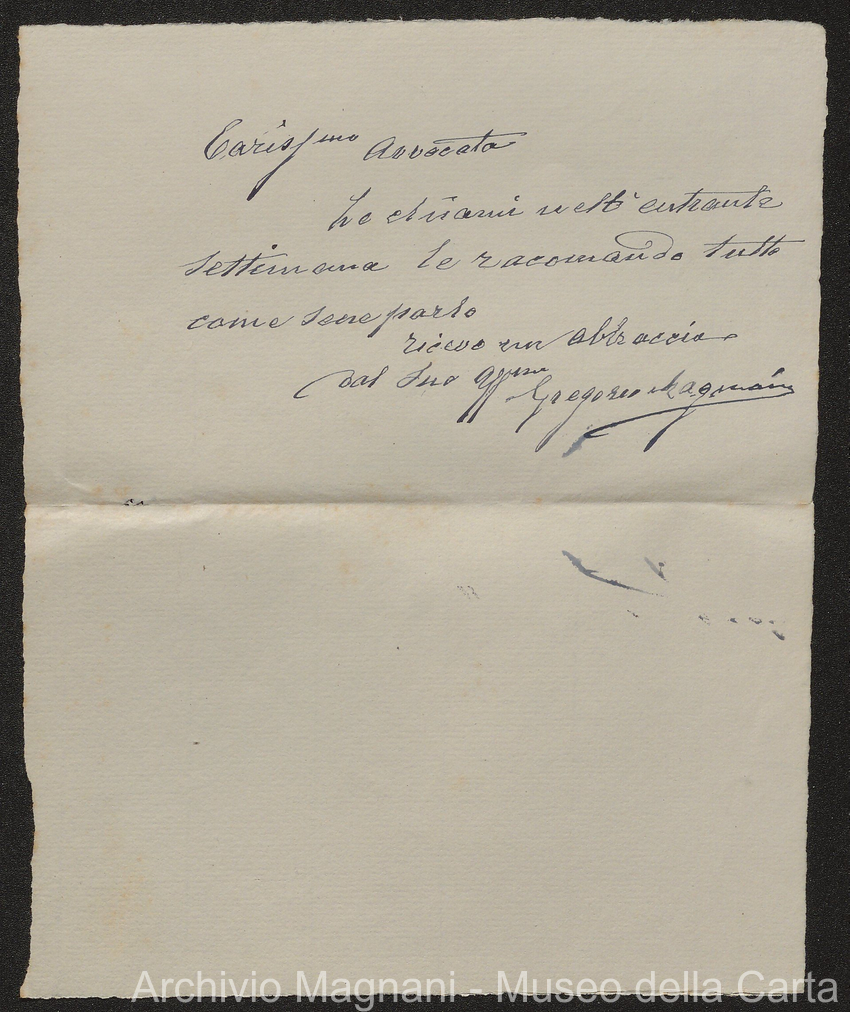 Cariss.mo Avvocato
nell' entrante
settimana le racomando tutto
come se ne parlò
riceva un abbraccio
dal Suo Aff.mo Gregorio Magnani
Archivio Magnani - Museo della Carta